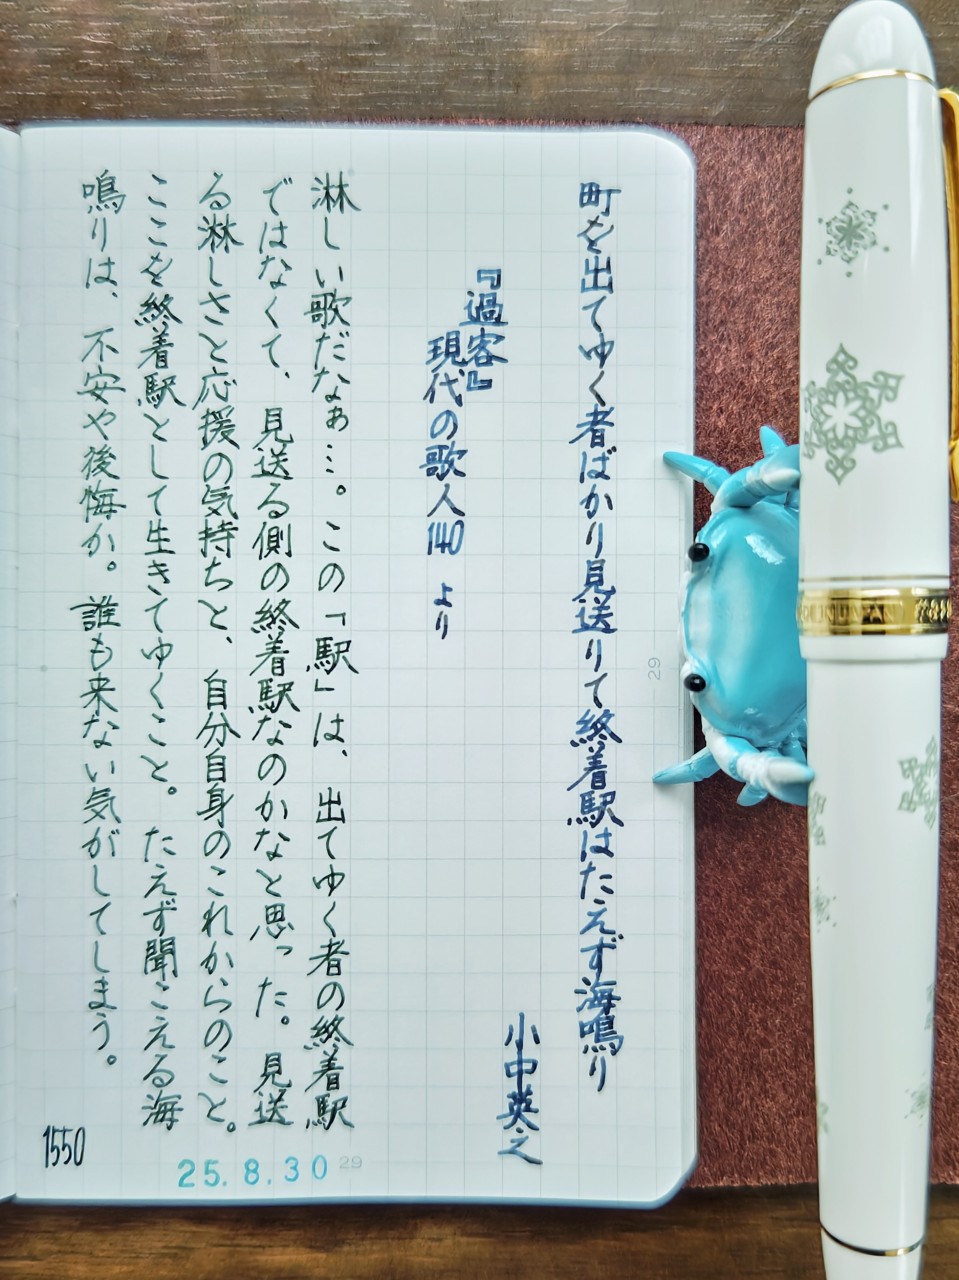 町を出てゆく者ばかり見送りて終着駅はたえず海鳴り
小中英之
『過客』
現代の歌人140 より
淋しい歌だなぁ…。この「駅」は、出てゆく者の終着駅
ではなくて、見送る側の終着駅なのかなと思った。見送
る淋しさと応援の気持ちと、自分自身のこれからのこと。
ここを終着駅として生きてゆくこと。たえず聞こえる海
鳴りは、不安や後悔か。誰も来ない気がしてしまう。
1550
25.8.30
29
29